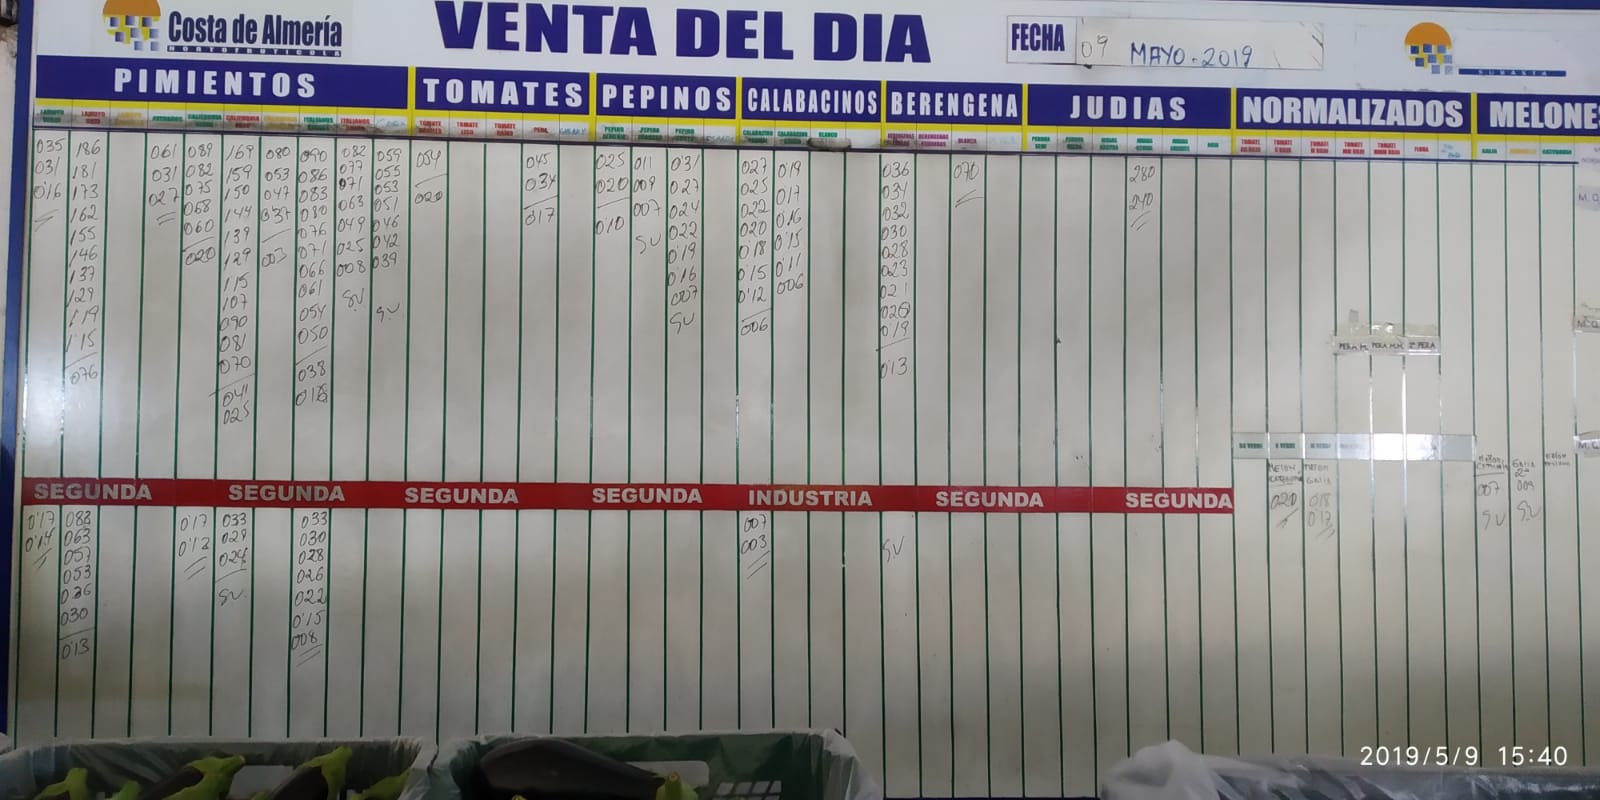 Costa de Almería
HORTOFRUTICOLA
VENTA DEL DIA
FECHA
09 MAYO-2019
SUBASTA
PIMIENTOS
TOMATES
PEPINOS
CALABACINOS
BERENGENA
JUDIAS
NORMALIZADOS
MELONES
035
031
016
186
181
173
162
155
146
137
129
119
1'15
076
061
031
027
089
082
075
068
060
020
169
159
150
144
139
129
115
107
090
081
070
041
025
080
053
047
037
003
090
086
083
080
076
071
066
061
054
050
038
018
082
077
071
063
049
025
008
SV
059
055
053
051
046
042
039
SV
054
020
PERA
045
034
017
025
020
010
011
009
007
SV
031
027
024
022
0'19
0'16
007
SV
027
025
022
020
0'18
0'15
0'12
006
019
017
016
0'15
0'11
006
036
034
032
030
028
023
021
020
019
0'13
BLANCA
070
280
240
PERA M.
PERA M.M.
2ª PERA
SEGUNDA
SEGUNDA
SEGUNDA
SEGUNDA
INDUSTRIA
SEGUNDA
SEGUNDA
0'17
0'14
088
063
057
053
036
030
0'13
0'17
0'12
033
029
024
SV
033
030
028
026
022
0'15
008
007
003
SV
MELON
020
MELON
GALIA
018
017
007
SV
GALIA
2ª
009
SV
2019/5/9 15:40